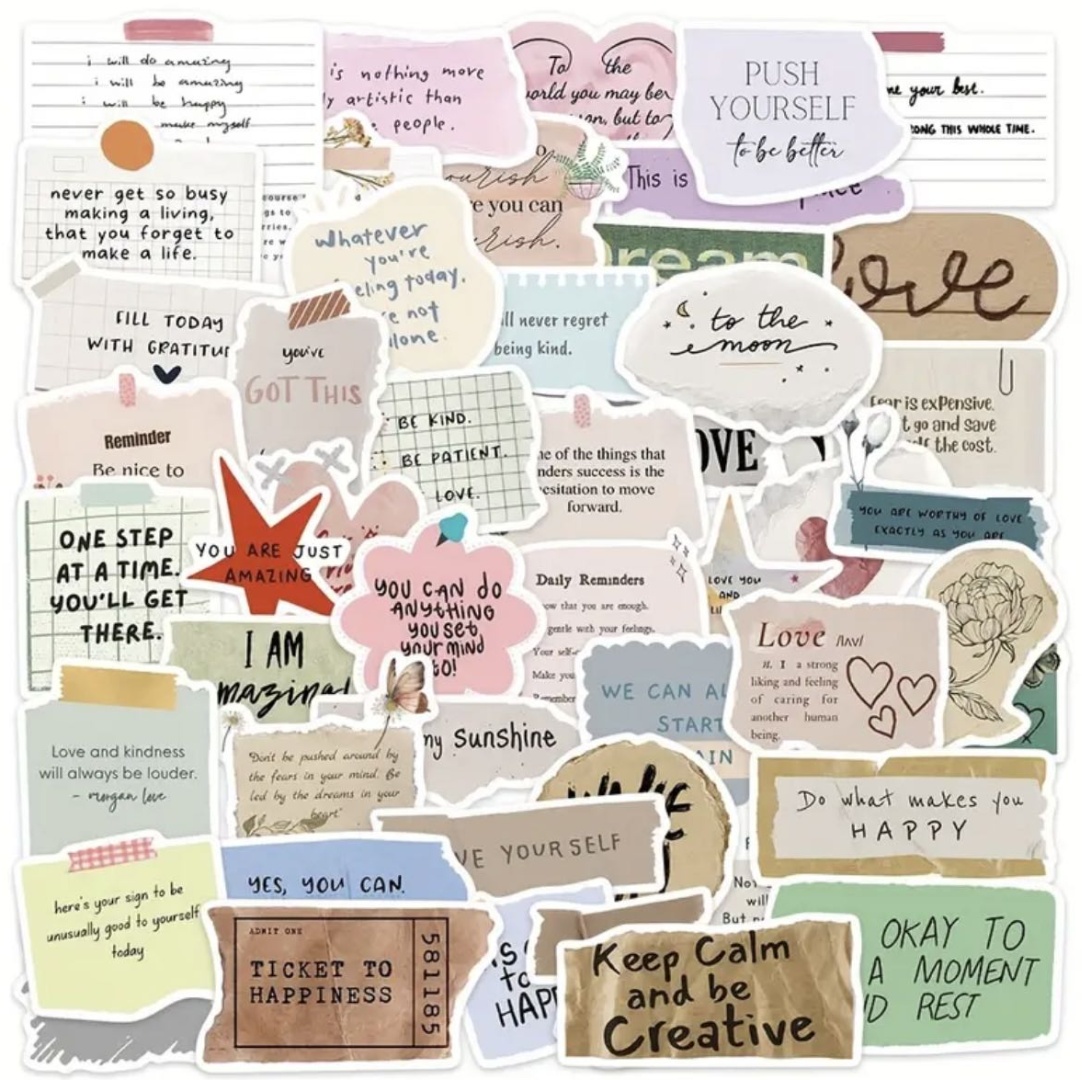 i will do amazing
i will be amazing
i will be happy
make myself
is nothing more
artistic than
people.
To the
world you may be
but to
PUSH
YOURSELF
to be better
your best.
THIS WHOLE TIME.
never get so busy
making a living,
that you forget to
make a life.
you can
This is
Whatever
you're
today,
not
Dream
love
FILL TODAY
WITH
you've
GOT THIS
never regret
being kind.
to the
moon
Fear is expensive.
go and save
the cost.
Reminder
Be nice to
BE KIND.
BE PATIENT.
LOVE.
of the things that
success is the
to move
forward.
YOU ARE WORTHY OF LOVE
EXACTLY AS YOU ARE
ONE STEP
AT A TIME.
YOU'LL GET
THERE.
YOU ARE JUST
AMAZING
YOU CAN DO
ANYTHING
YOU SET
YOUR MIND
TO!
Daily Reminders
that you are enough.
gentle with your feelings.
Your
Make you
Remember
LOVE YOU
AND
I AM
amazing!
WE CAN
START
Love /lʌv/
n. 1 a strong
liking and feeling
of caring for
another human
being.
my sunshine
Love and kindness
will always be louder.
- morgan love
"Don't be pushed around by
the fears in your mind. Be
led by the dreams in your
heart"
YOURSELF
Do what makes you
HAPPY
here's your sign to be
unusually good to yourself
today
YES, YOU CAN.
ADMIT ONE
TICKET TO
HAPPINESS
581185
to
will
But
Keep Calm
and be
Creative
OKAY TO
A MOMENT
REST